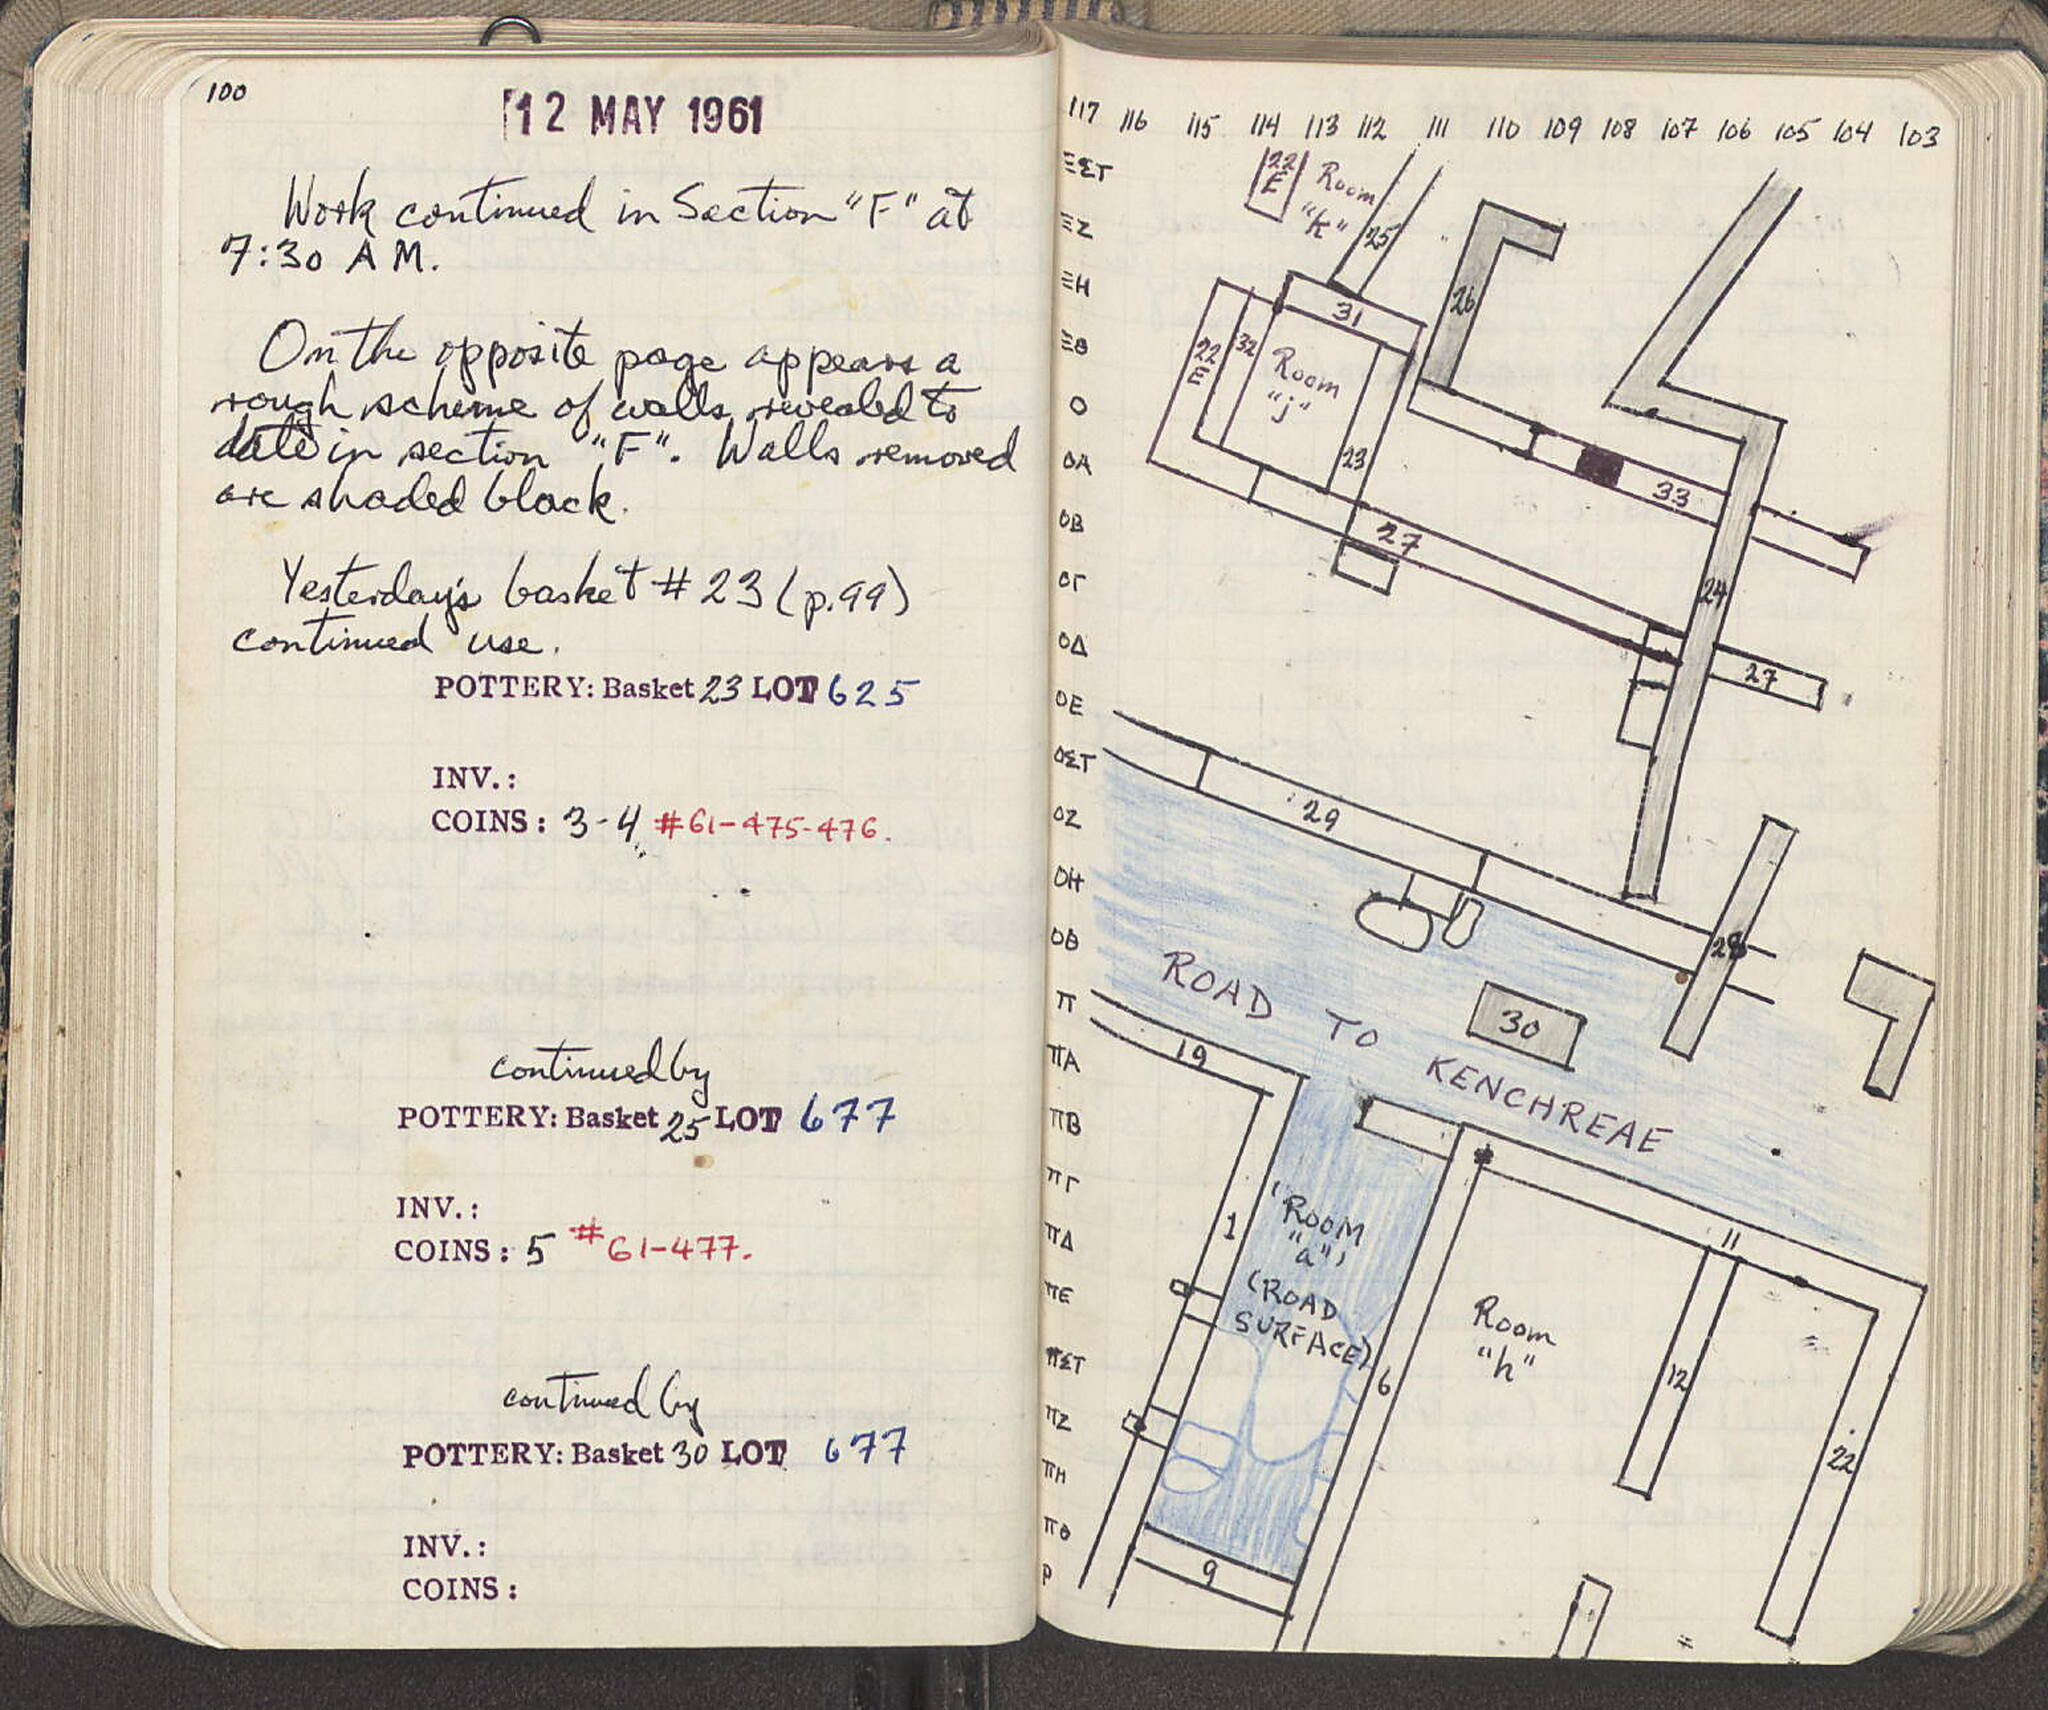 100
12 MAY 1961
Work continued in Section "F" at
7:30 AM.
On the opposite page appears a
rough scheme of walls revealed to
date in section "F". Walls removed
are shaded black.
Yesterday's basket # 23 (p.99)
continued use.
POTTERY: Basket 23 LOT 625
INV.:
COINS: 3-4 #61-475-476.
continued by
POTTERY: Basket 25 LOT 677
INV.:
COINS: 5 #61-477.
continued by
POTTERY: Basket 30 LOT 677
INV.:
COINS:
117 116 115 114 113 112 111 110 109 108 107 106 105 104 103
ΞΣΤ
ΞΖ
ΞΗ
ΞΘ
Ο
ΟΑ
ΟΒ
ΟΓ
ΟΔ
ΟΕ
ΟΣΤ
ΟΖ
ΟΗ
ΟΘ
Π
ΠΑ
ΠΒ
ΠΓ
ΠΔ
ΠΕ
ΠΣΤ
ΠΖ
ΠΗ
ΠΘ
Ρ
22
E
Room
"k"
25
26
31
22
E
32
Room
"j"
23
33
27
24
27
29
28
30
ROAD TO KENCHREAE
19
11
1
'ROOM
"a"'
(ROAD
SURFACE)
6
Room
"h"
12
22
9